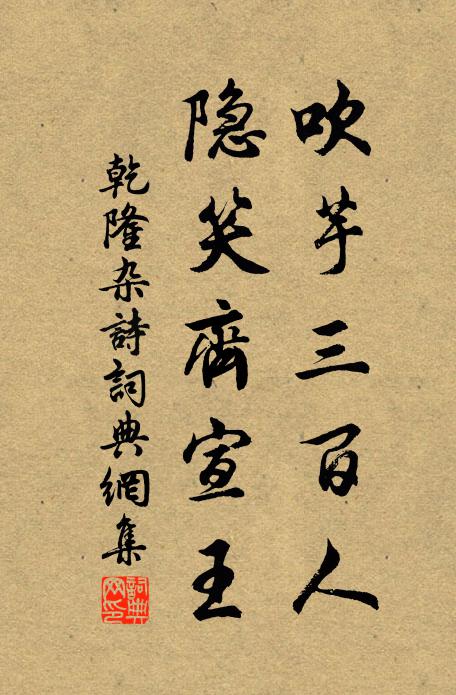 吹芋三百人
隐笑齊宣王
乾隆杂詩詞典網集
詞典網印